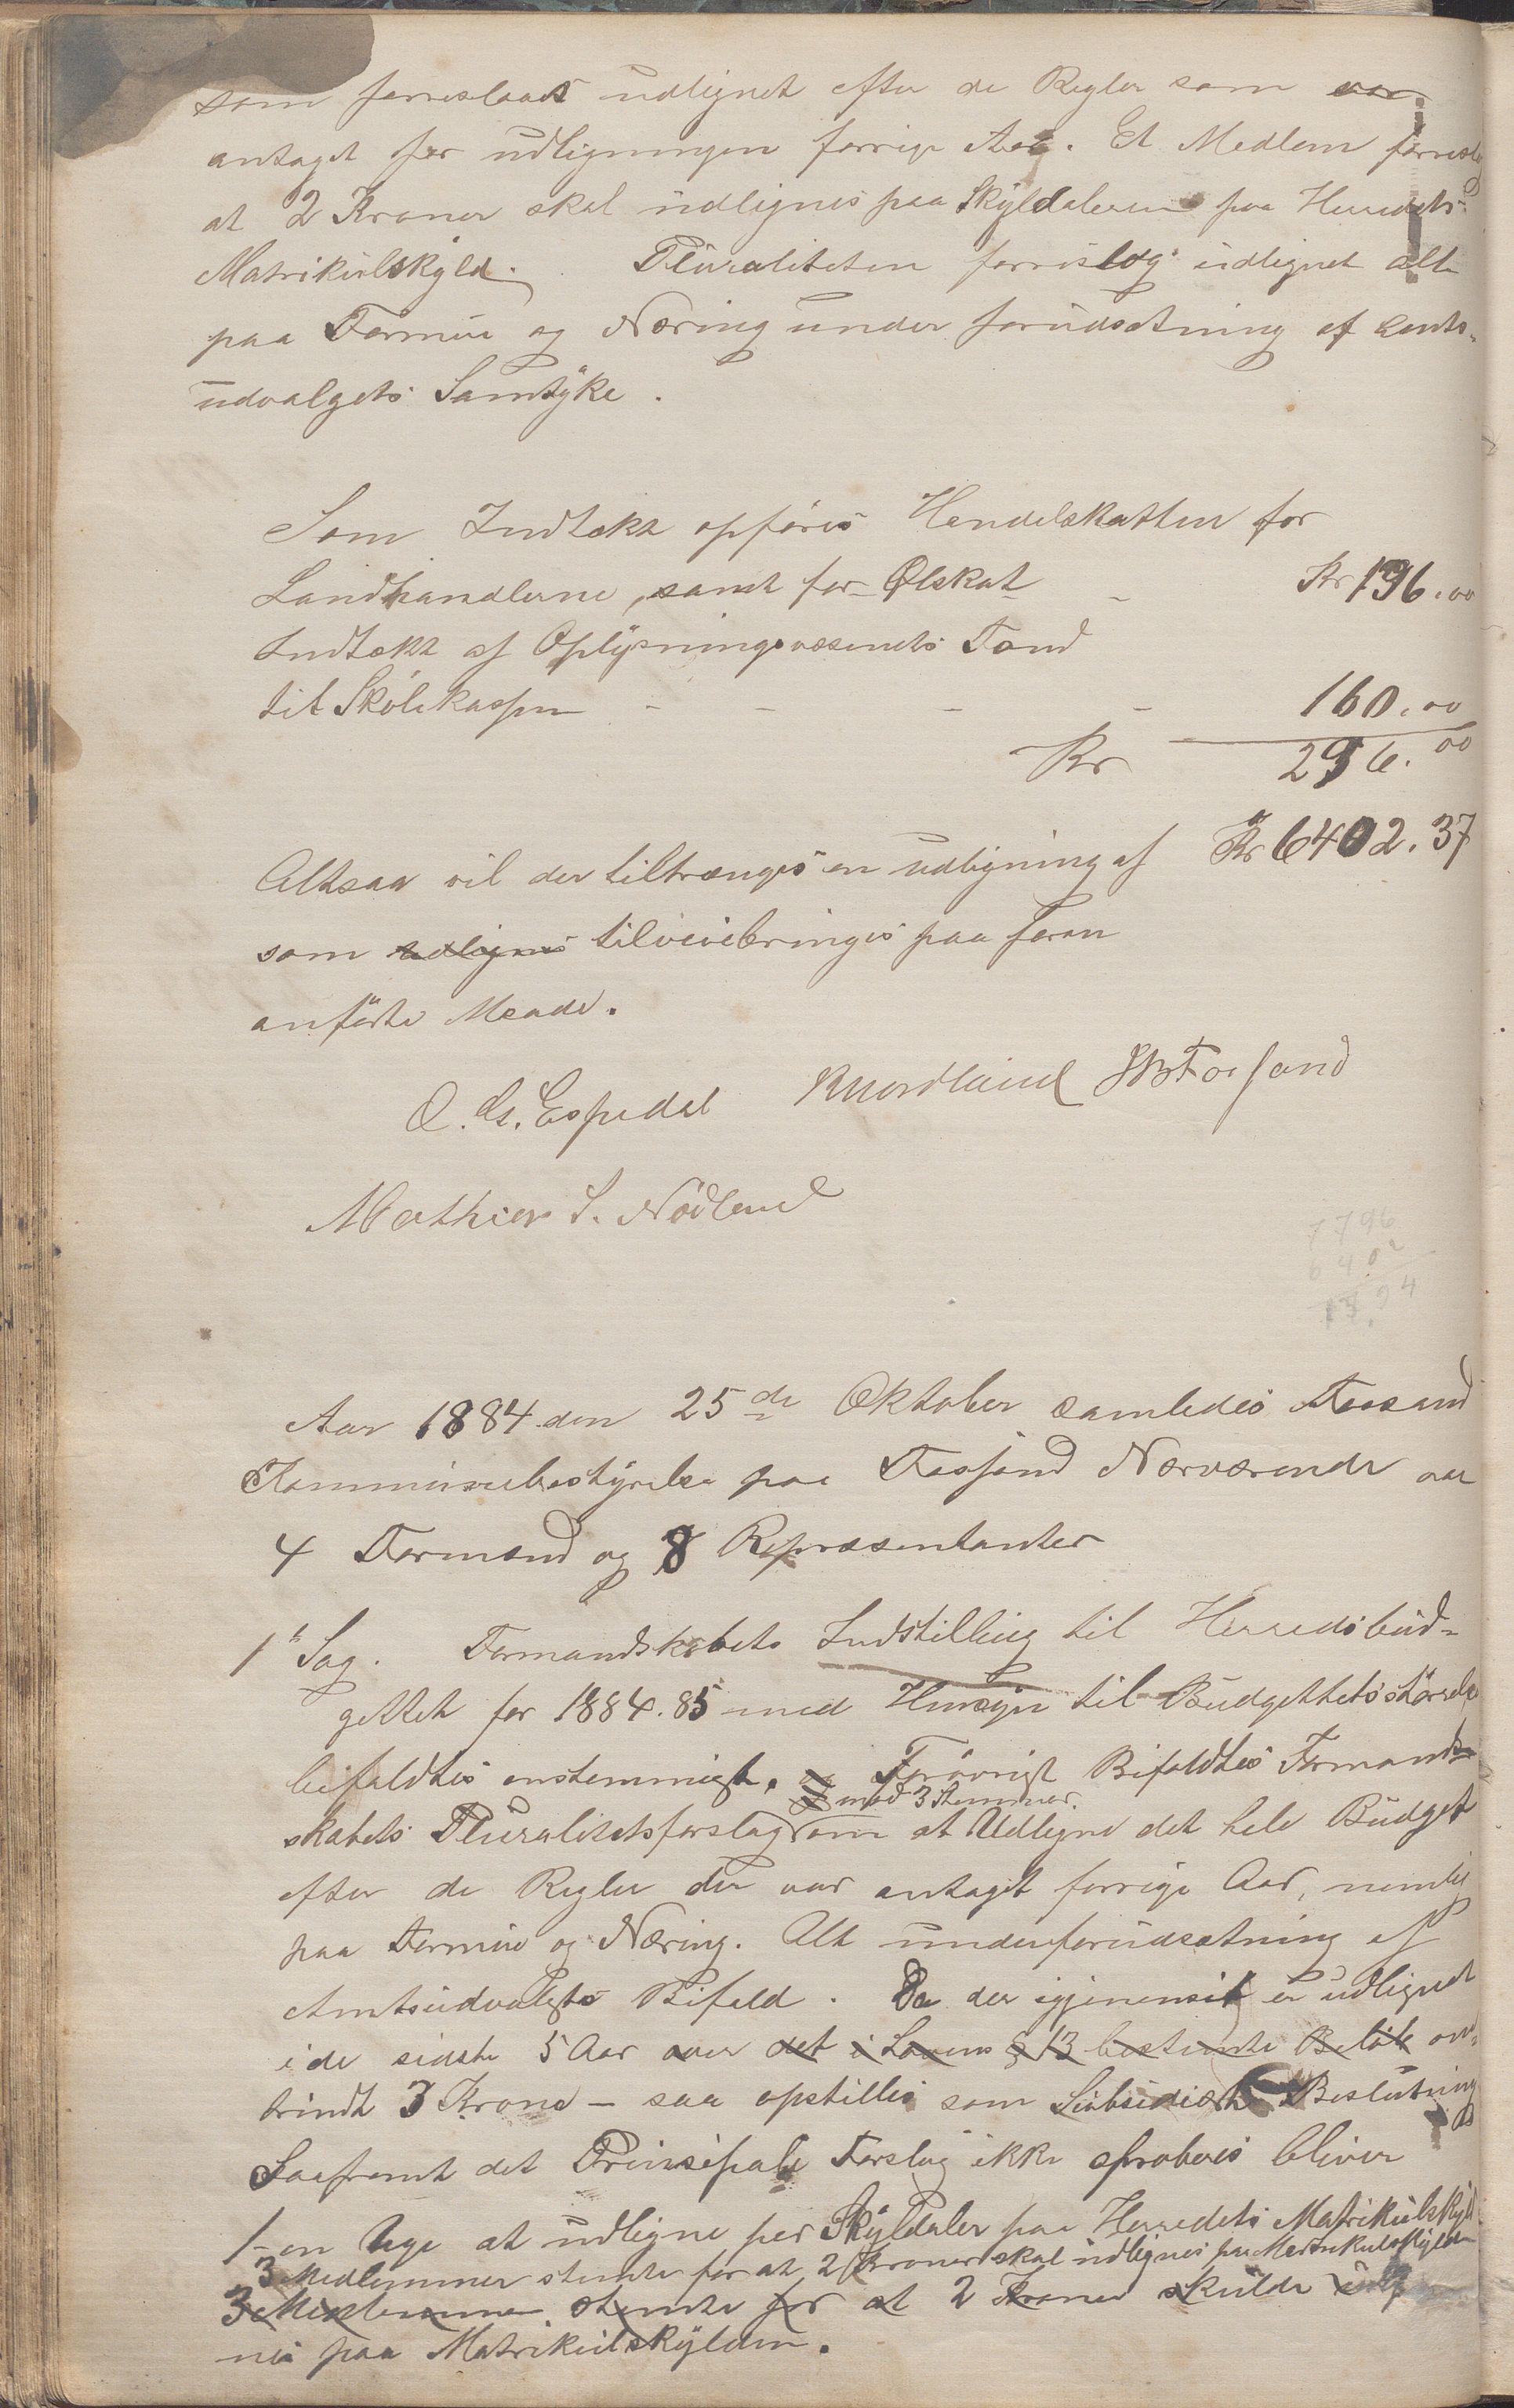 som forreslaaes udlignet efter de Regler som var
antaget for udligningen forrige Aar. Et Medlem forreslog
at 2 Kroner skal udlignes paa Skylddaleren paa Herredets
Matrikulskyld. Pluraliteten forreslog udlignet alt
paa Formue og Næring under forudsætning af Amts-
udvalgets Samtykke.
Som Indtækt opføres Handelskatten for
Landhandlerne, samt for Ølskat - Kr 136.00
Indtækt af Oplysningsvæsenets Fond
til Skolekassen - - - - 160.00
Kr 296.00
Altsaa vil der tiltrænges en udligning af Kr 6402.37
som udlignes tilveiebringes paa foran
anførte Maade.
O. Gs. Espedal KNordland Forsand
Mathias S. Nødland
7796
6402
1394
Aar 1884 den 25de Oktober samledes Fossand
Kommunebestyrelse paa Fossand Nærværende var
4 Formænd og 8 Repræsentanter
1ste Sag. Formandskabets Indstilling til Herredsbud-
gettet for 1884.85 med Hensyn til Budgettets størrelse
bifaldtes enstemmigt. og Forøvrigt Bifaldtes Formand-
mod 3 Stemmer.
skabets Pluralitetsforslag om at Udligne det hele Budget
efter de Regler der var antaget forrige Aar, nemlig
paa Formue og Næring. Alt under forudsætning af
Amtsudvalgets Bifald. Da der igjenemsnit er udlignet
i de sidste 5 Aar over det i Lovens § 13 bestemte Beløb om-
trindt 3 Krone - saa opstilles som Subsidiært Beslutning
Saafremt det Prinsipale Forslag ikke aproberes bliver
1- en Uge at udligne per Skylddaler paa Herredets Matrikulskyld
3 Medlemmer stemte for at 2 Kroner skal udlignes paa Matrikulskylden
3 Medlemmer stemte for at 2 Kroner skulde udlig
nes paa Matrikulskylden.